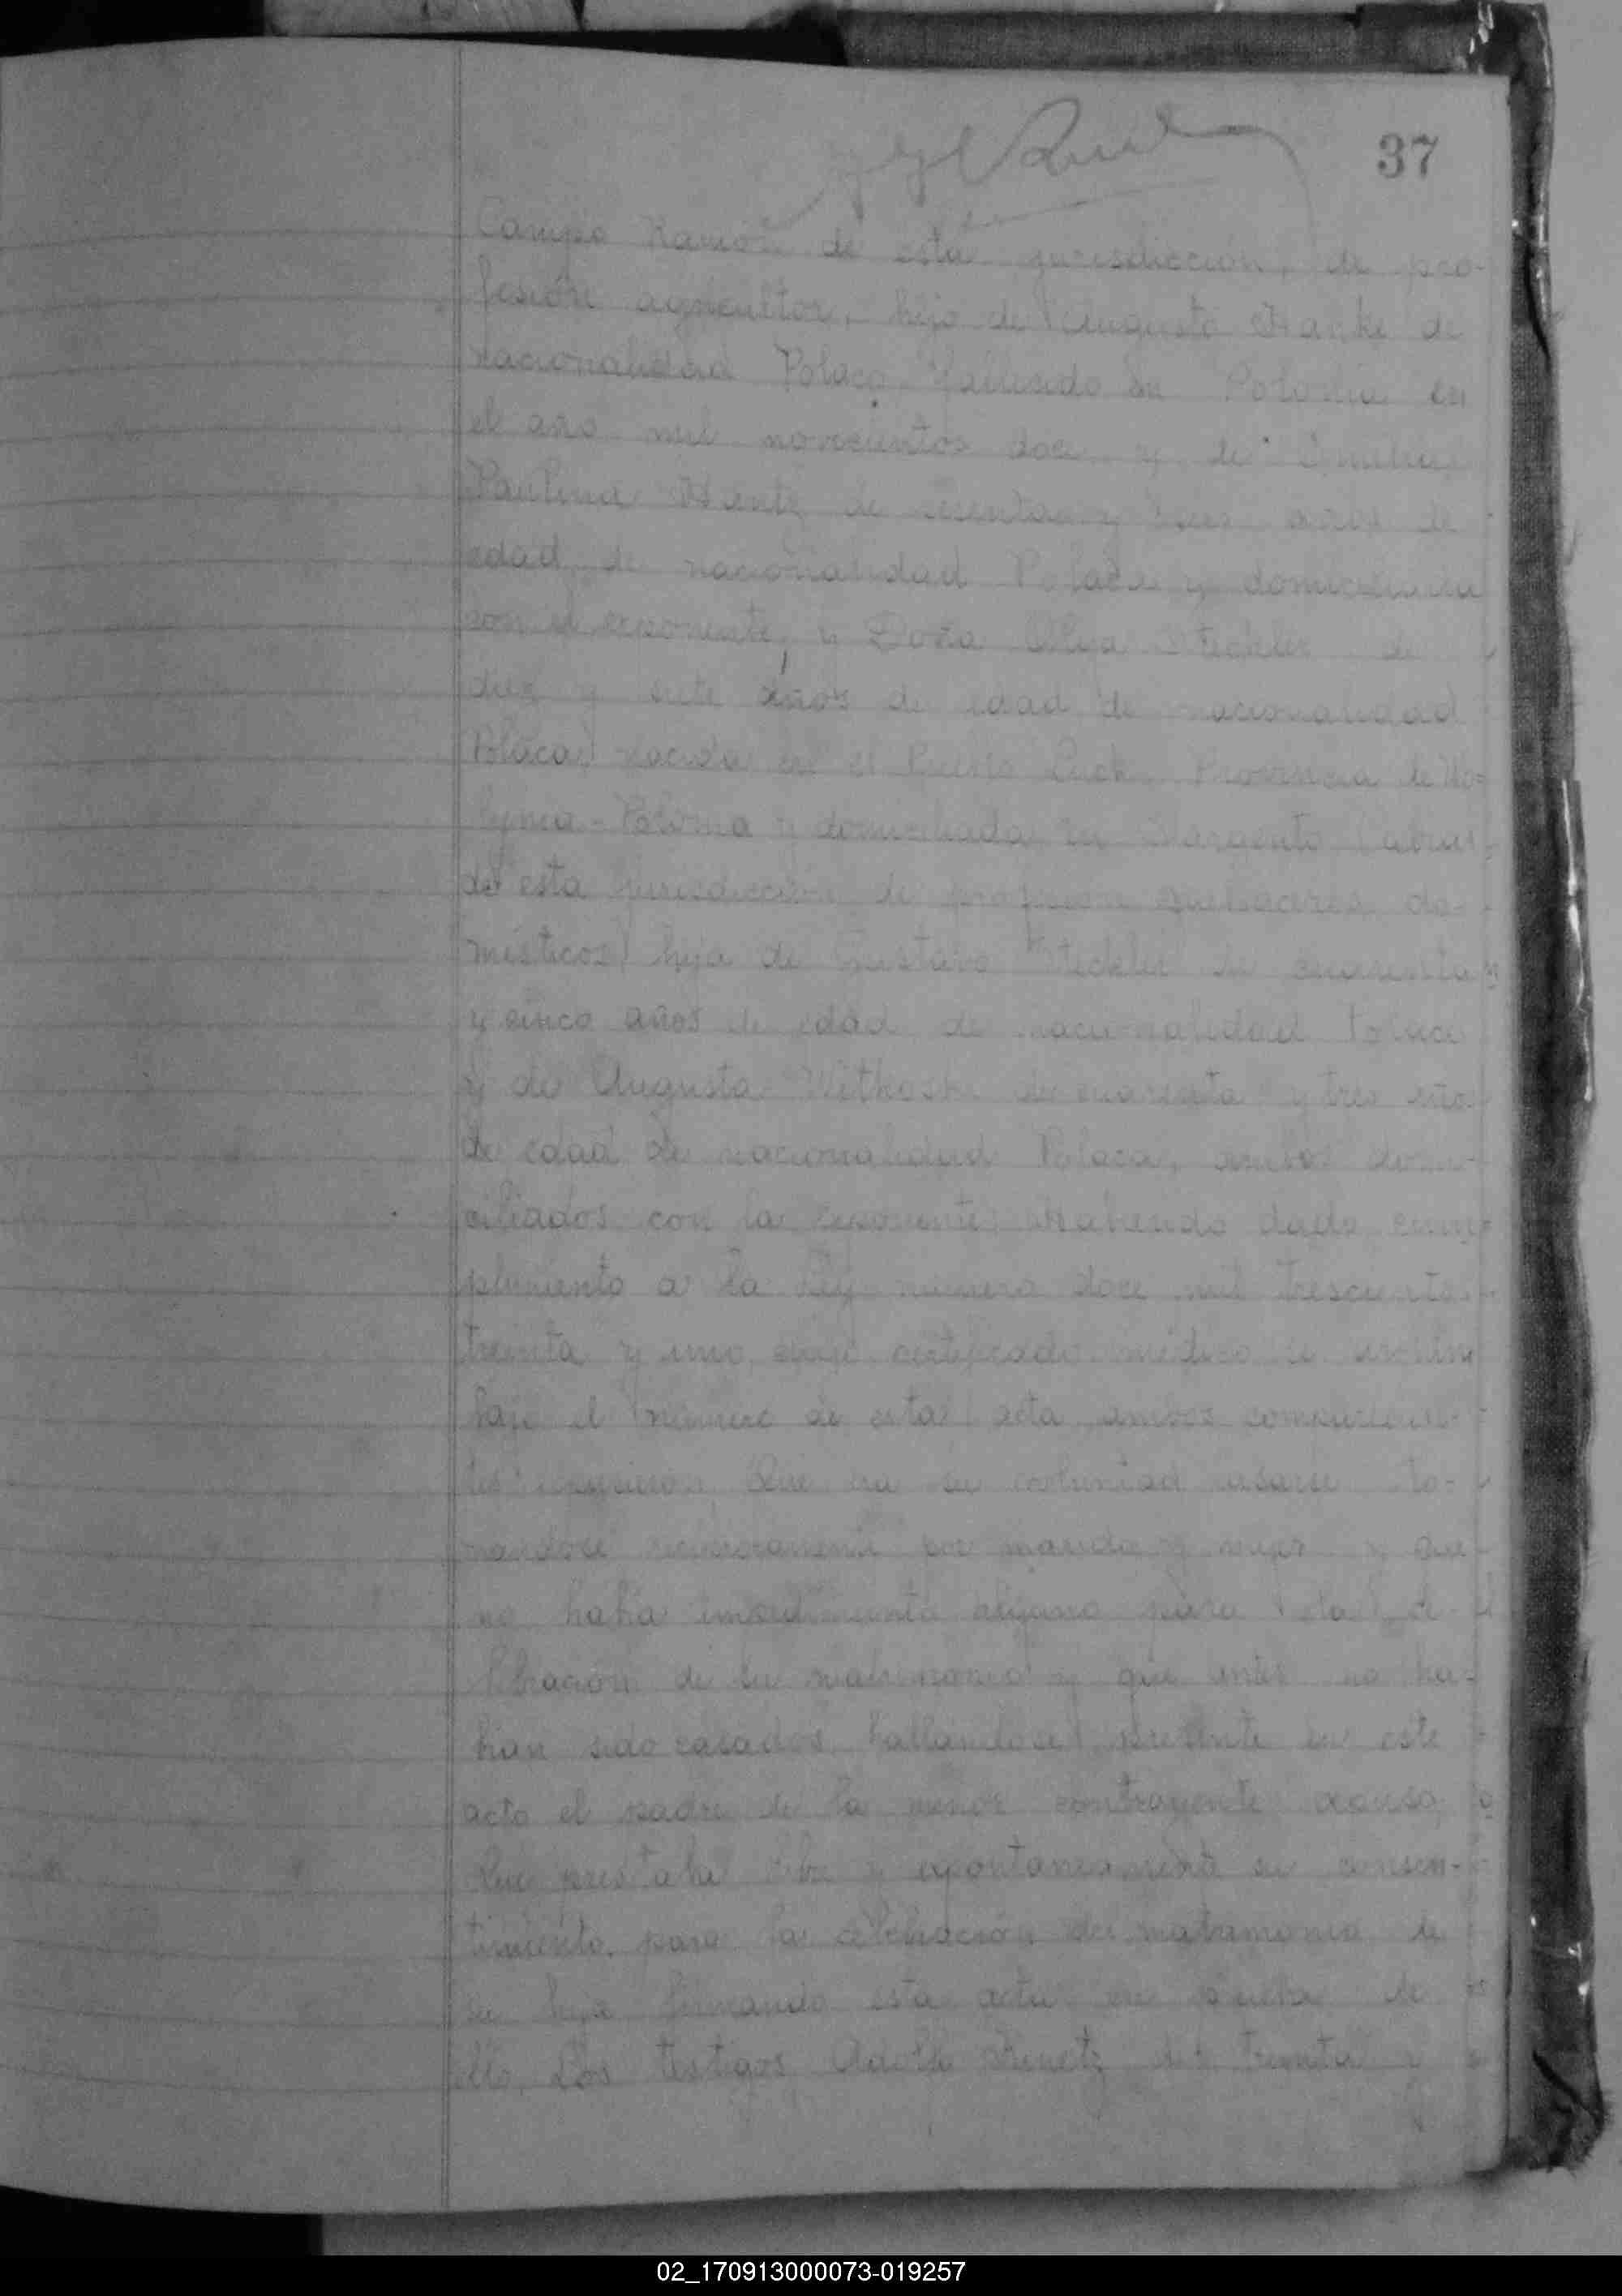 37
Campo Ramón de esta jurisdicción, de pro-
fesión agricultor, hijo de Augusto Hanke de
nacionalidad Polaco, fallecido en Polonia en
el año mil novecientos doce y de
Paulina de sesenta y años de
edad de nacionalidad Polaca y domiciliada
con el exponente, y Doña Olga de
diez y siete años de edad de nacionalidad
Polaca, nacida en el Pueblo Luck, Provincia de Wo-
lynia - Polonia y domiciliada en Sargento Cabral
de esta jurisdicción de profesión quehaceres do-
mésticos, hija de Gustavo de cuarenta
y cinco años de edad de nacionalidad Polaca
y de Augusta Witkoski de cuarenta y tres años
de edad de nacionalidad Polaca, ambos domi-
ciliados con la exponente. Habiendo dado cum-
plimiento a la Ley número doce mil trescientos
treinta y uno, cuyo certificado médico se archiva
bajo el número de esta acta, ambos comparecien-
tes Que era su voluntad casarse to-
mandose reciprocamente por marido y mujer y que
no había impedimento alguno para la ce-
lebración de su matrimonio y que antes no ha-
bian sido casados, hallandose presente en este
acto el padre de la menor contrayente
Que prestaba libre y espontaneamente su consen-
timiento, para la celebración del matrimonio de
su hija firmando esta acta en prueba de
ello. Los testigos Adolfo de treinta y
02_170913000073-019257